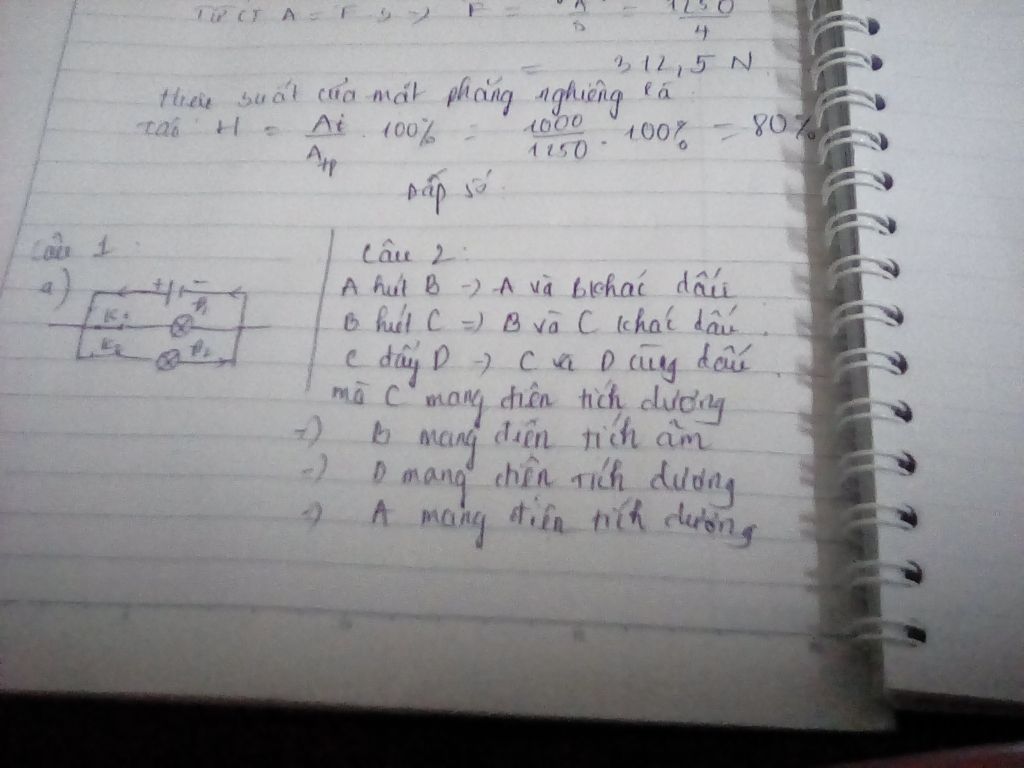 Từ CT A = F.s => F = A/s = 1250/4
= 312,5 N
Hiệu suất của mát phẳng nghiêng là
H = Ai/Atp . 100% = 1000/1250 . 100% = 80%
Đấp số:
Câu 1:
a)
+ -
K1 Đ1
K2 Đ2
Câu 2:
A hút B => A và B khác dấu
B hút C => B và C khác dấu.
C đẩy D => C và D cùng dấu.
mà C mang điện tích dương
=> B mang điện tích âm
=> D mang điện tích dương
=> A mang điện tích dương